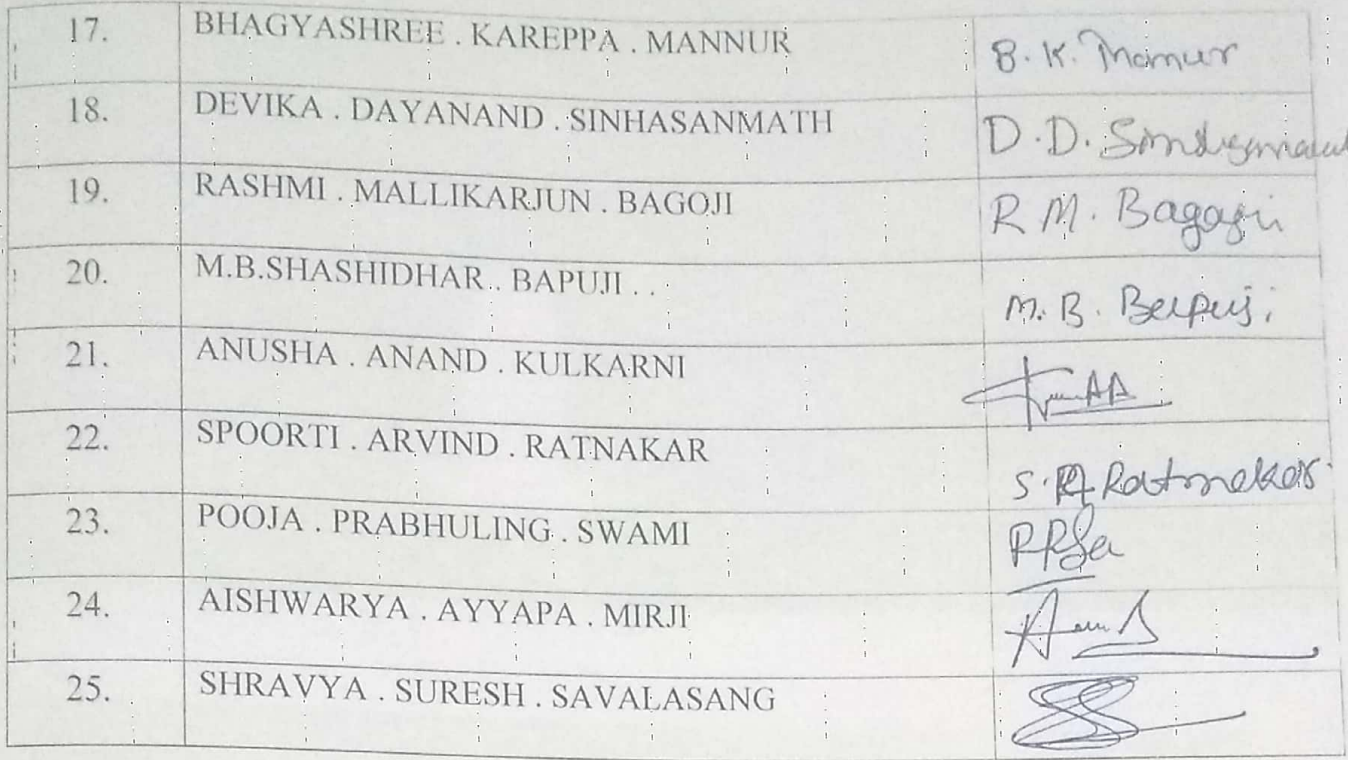 17. BHAGYASHREE . KAREPPA . MANNUR B. K. Mannur
18. DEVIKA . DAYANAND . SINHASANMATH D. D.
19. RASHMI . MALLIKARJUN . BAGOJI R M. Bagoji
20. M.B.SHASHIDHAR.. BAPUJI . . M. B. Bapuji.
21. ANUSHA . ANAND . KULKARNI
22. SPOORTI . ARVIND . RATNAKAR S. A Ratnakar.
23. POOJA . PRABHULING . SWAMI
24. AISHWARYA . AYYAPA . MIRJI
25. SHRAVYA . SURESH . SAVALASANG